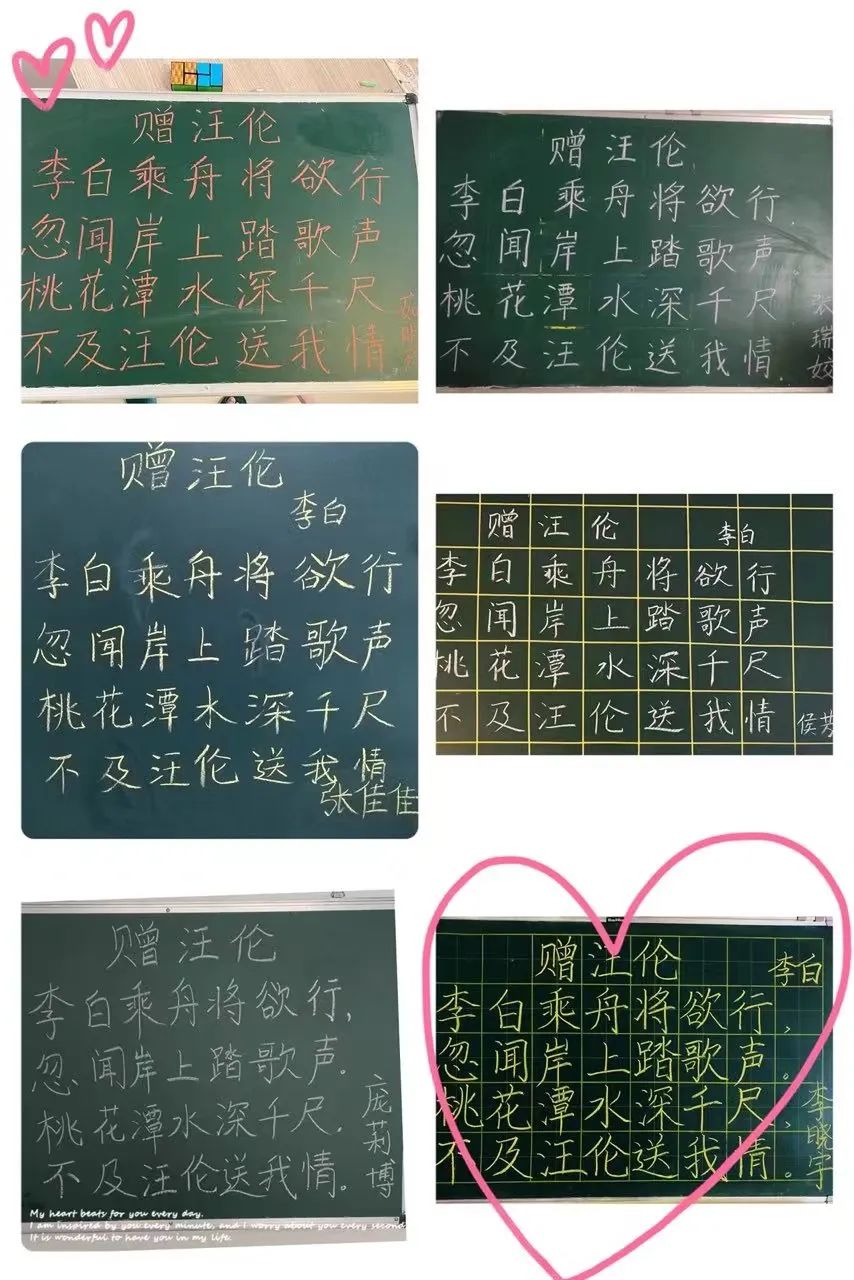 赠汪伦
李白乘舟将欲行
忽闻岸上踏歌声
桃花潭水深千尺
不及汪伦送我情
赠汪伦
李白乘舟将欲行
忽闻岸上踏歌声
桃花潭水深千尺
不及汪伦送我情.
张瑞姣
赠汪伦
李白
李白乘舟将欲行
忽闻岸上踏歌声
桃花潭水深千尺
不及汪伦送我情
张佳佳
赠汪伦 李白
李白乘舟将欲行
忽闻岸上踏歌声
桃花潭水深千尺
不及汪伦送我情
侯芳
赠汪伦
李白乘舟将欲行,
忽闻岸上踏歌声。
桃花潭水深千尺,
不及汪伦送我情。
庞莉博
My heart beats for you every day.
I am inspired by you every minute, and I worry about you every second
It is wonderful to have you in my life.
赠汪伦 李白
李白乘舟将欲行,
忽闻岸上踏歌声。
桃花潭水深千尺,
不及汪伦送我情。
李晓宇